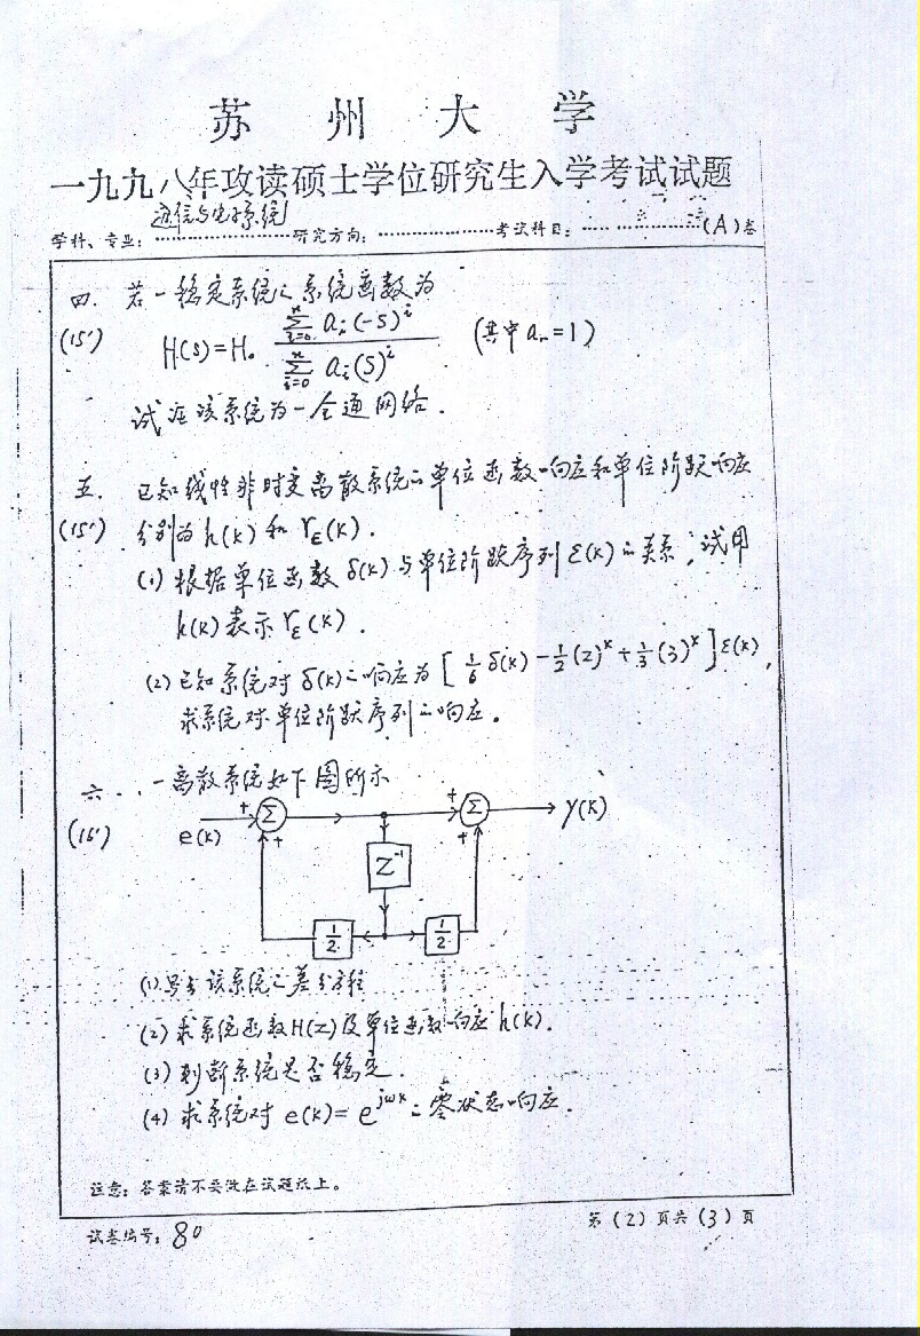 苏州大学
一九九八年攻读硕士学位研究生入学考试试题
学科、专业：通信与电子系统 研究方向： 考试科目： (A)卷
四. 若一稳定系统之系统函数为
(15') H(s)=H₀ \frac{\sum_{i=0}^{n} a_i(-s)^i}{\sum_{i=0}^{n} a_i(s)^i} (其中 aₙ=1)
试证该系统为一全通网络.
五. 已知线性非时变离散系统的单位函数响应和单位阶跃响应
(15') 分别为 h(k) 和 r_ε(k).
(1) 根据单位函数 δ(k) 与单位阶跃序列 ε(k) 的关系,试用
h(k) 表示 r_ε(k).
(2) 已知系统对 δ(k) 之响应为 [\frac{1}{6}δ(k) - \frac{1}{2}(2)^k + \frac{1}{3}(3)^k]ε(k),
求系统对单位阶跃序列的响应.
六. 一离散系统如下图所示
(16') e(k) + Σ + + Σ + y(k)
Z⁻¹
\frac{1}{2} \frac{1}{2}
(1) 写出该系统之差分方程
(2) 求系统函数H(z)及单位函数响应 h(k).
(3) 判断系统是否稳定.
(4) 求系统对 e(k)= e^{jωk} 之零状态响应.
注意：答案请不要做在试题纸上。
试卷编号：80 第(2)页共(3)页